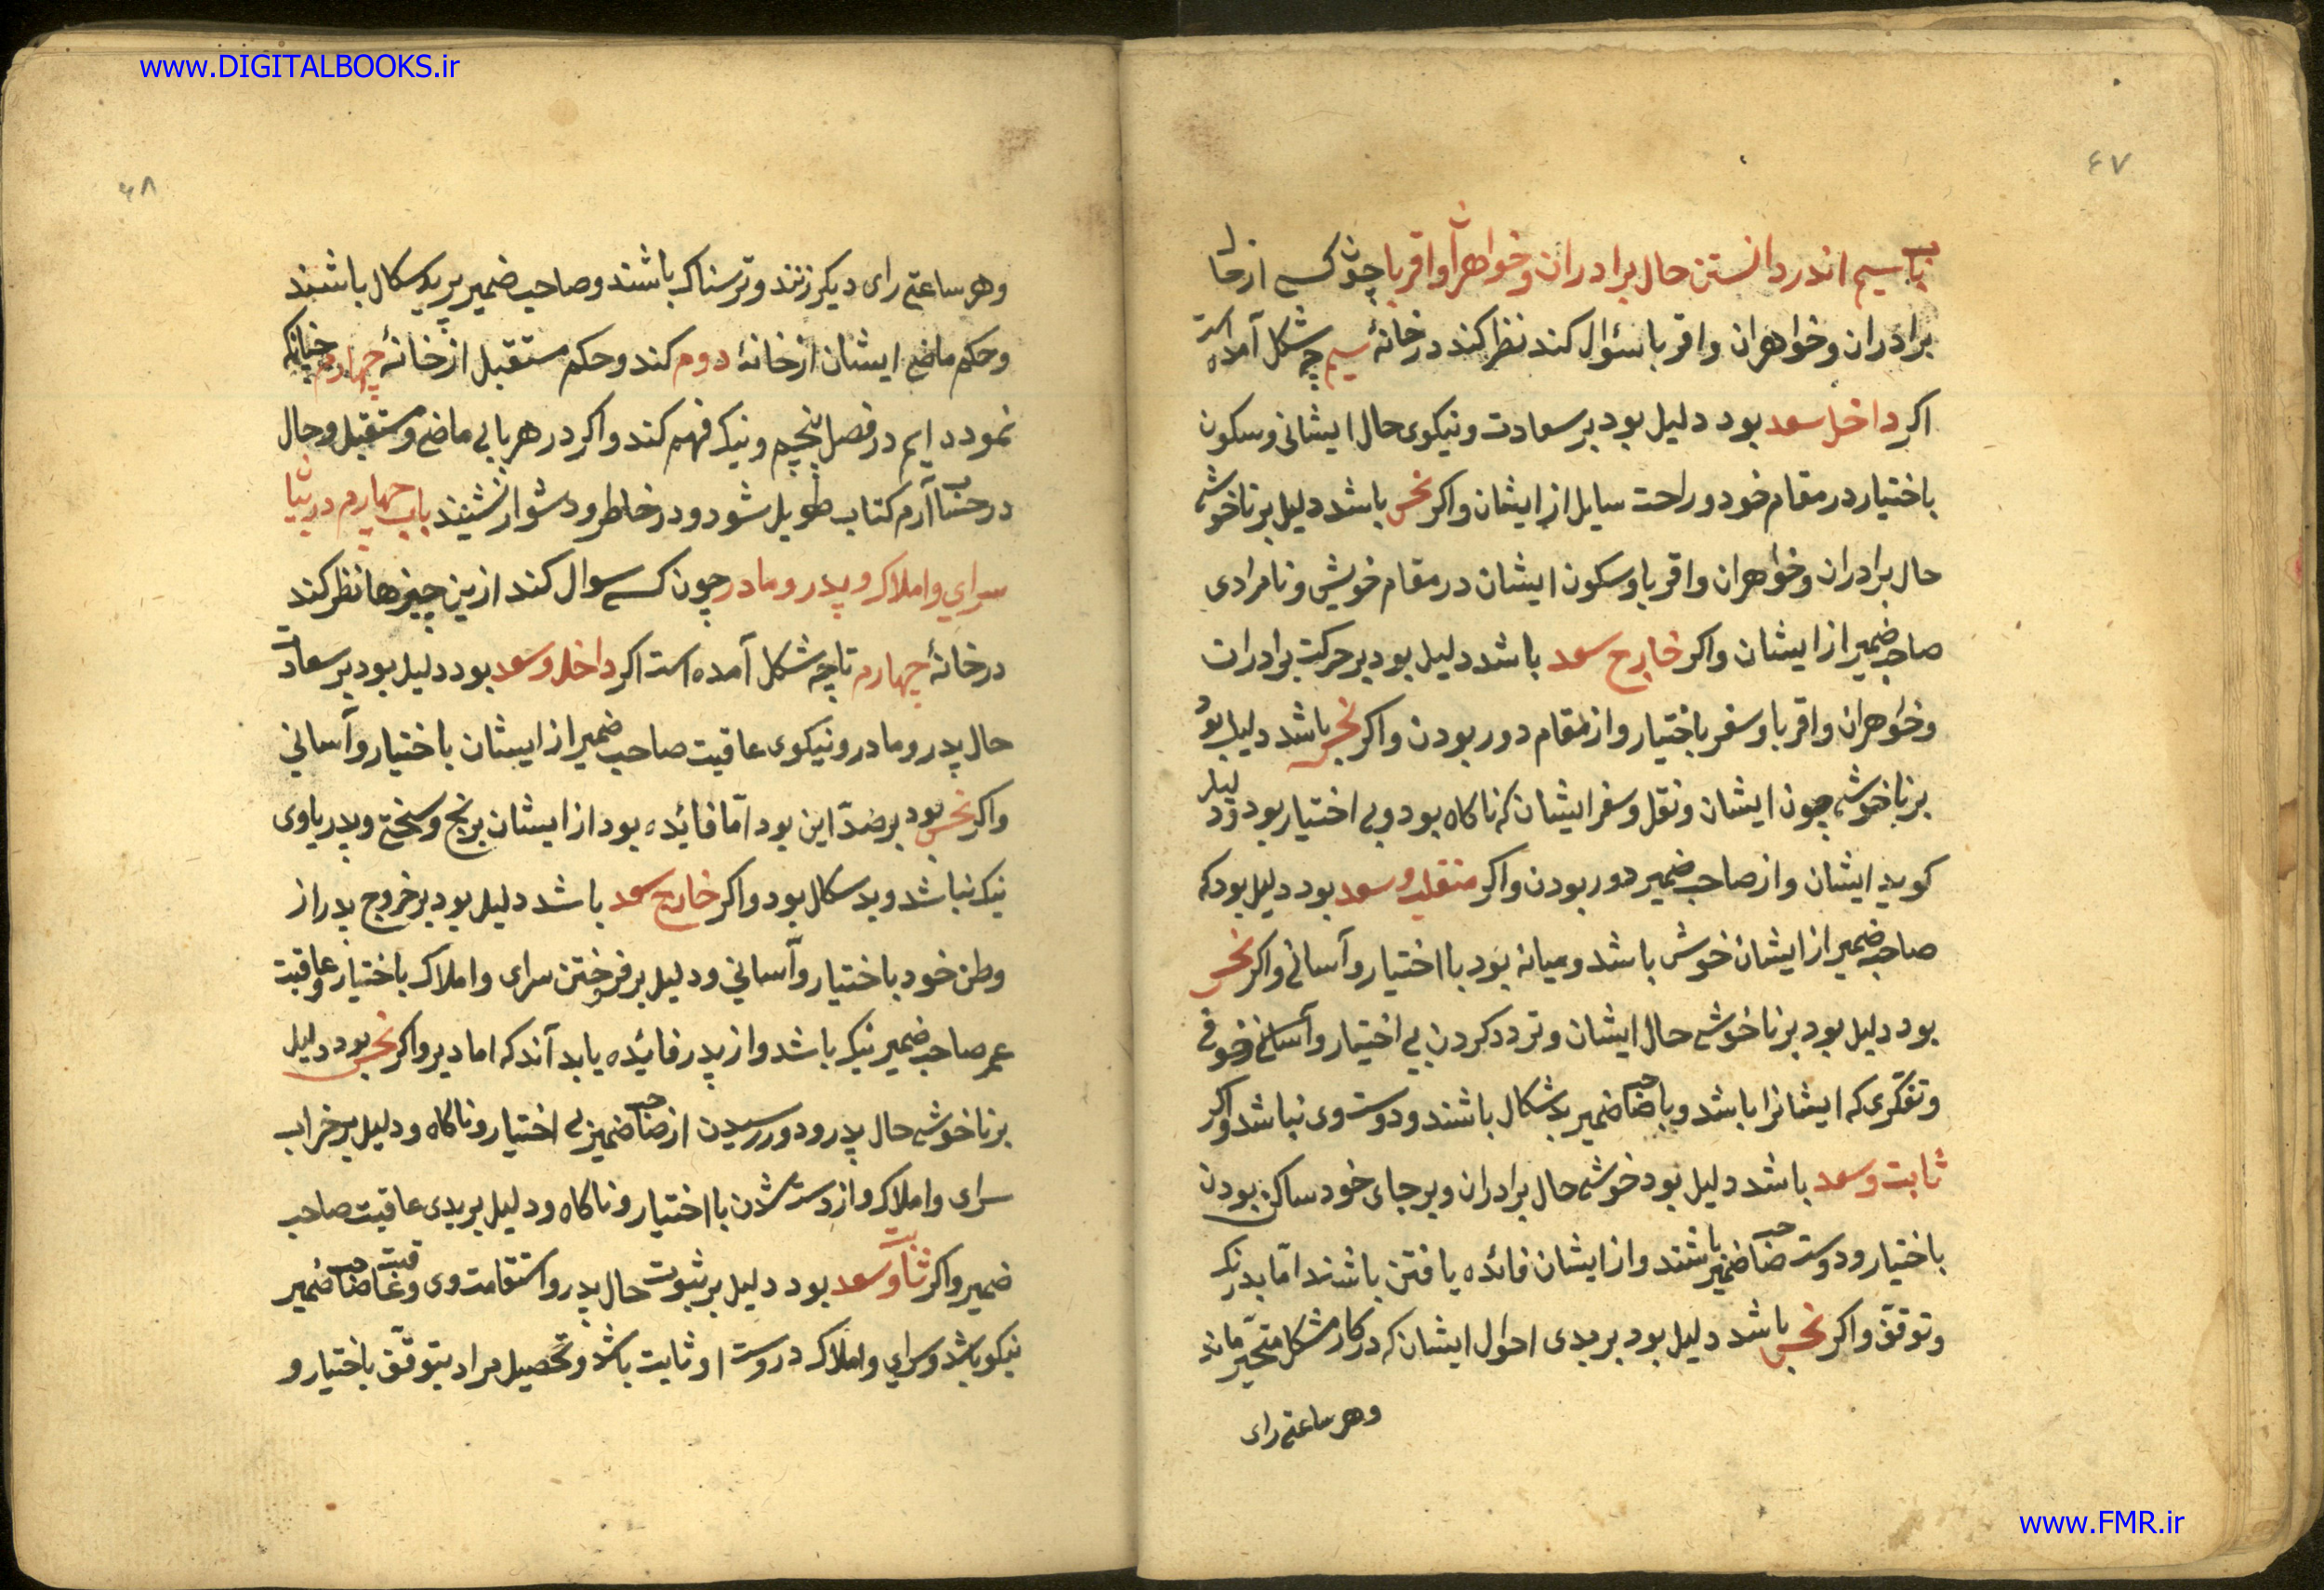 www.DIGITALBOOKS.ir
۴۷
باب سیم اندر دانستن حال برادران و خواهران و اقربا چون کسی از حال
برادران و خواهران و اقربا سئوال کند نظر کند در خانهٔ سیم چه شکل آمده است
اکر داخل سعد بود دلیل بود بر سعادت و نیکوی حال ایشانی و سکون
باختیار در مقام خود و راحت سایل از ایشان و اکر نحس باشد دلیل بر ناخوشی
حال برادران و خواهران و اقربا و سکون ایشان در مقام خویش و نامرادی
صاحب ضمیر از ایشان و اکر خارج سعد باشد دلیل بود بر حرکت برادران
و خواهران و اقربا و سفر باختیار و از مقام دور بودن و اکر نحس باشد دلیل بود
بر ناخوشی چون ایشان و نقل و سفر ایشان که ناکاه بود و بی اختیار بود و دلیل
کوید ایشان و از صاحب ضمیر دور بودن و اکر منقلب و سعد بود دلیل بود که
صاحب ضمیر از ایشان خوش باشد و میانه بود با اختیار و آسانی و اکر نحس
بود دلیل بود بر ناخوشی حال ایشان و تردد کردن بی اختیار و آسانی و خوفی
و تفکری که ایشانرا باشد و با صاحب ضمیر بد شکال باشند و دوست وی نباشد و اکر
ثابت و سعد باشد دلیل بود خوشی حال برادران و بر جای خود ساکن بودن
باختیار و دوست صاحب ضمیر باشند و از ایشان فائده یافتن باشند امّا بدرنک
و توقّف و اکر نحس باشد دلیل بود بر بدی احوال ایشان که در کار مشکل متحیّر ماند
وهر ساعتی رای
www.FMR.ir
۴۸
وهر ساعتی رای دیکر زنند و ترسناک باشند و صاحب ضمیر بر بد سکال باشند
و حکم ماضی ایشان از خانهٔ دوم کند و حکم مستقبل از خانهٔ چهارم چنانکه
نموده ایم در فصل پنجم و نیک فهم کند و اکر در هر بابی ماضی و مستقبل و حال
در حساب آرم کتاب طویل شود و در خاطر و دشوار نشیند باب چهارم در بیان
سرای و املاک و پدر و مادر چون کسی سوال کند ازین چیزها نظر کند
در خانهٔ چهارم تا چه شکل آمده است اکر داخل و سعد بود دلیل بود بر سعادت
حال پدر و مادر و نیکوی عاقبت صاحب ضمیر از ایشان باختیار و آسانی
و اکر نحس بود بر ضدّ این بود امّا فائده بود از ایشان برنج و سختی و پدر باوی
نیک نباشد و بد سکال بود و اکر خارج سعد باشد دلیل بود بر خروج پدر از
وطن خود باختیار و آسانی و دلیل بر فروختن سرای و املاک باختیار و عاقبت
عمر صاحب ضمیر نیک باشد و از پدر فائده یابد آندکه اما دیر و اکر نحس بود دلیل
بر ناخوشی حال پدر و دور رسیدن از صاحب ضمیر بی اختیار و ناکاه و دلیل بر خراب
سرای و املاک و از دست شدن با اختیار و ناکاه و دلیل بر بدی عاقبت صاحب
ضمیر و اکر ثابت و سعد بود دلیل بر ثبوت حال پدر و استقامت وی و عاقبت صاحب ضمیر
نیکو باشد و سرای و املاک در دست او ثابت باشد و تحصیل مراد بتوقّف باختیار و